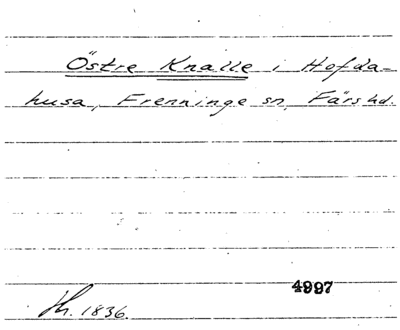 Östre Knalle i Hofda-
husa, Frenninge sn, Färs hd.
4997
Hh. 1836.